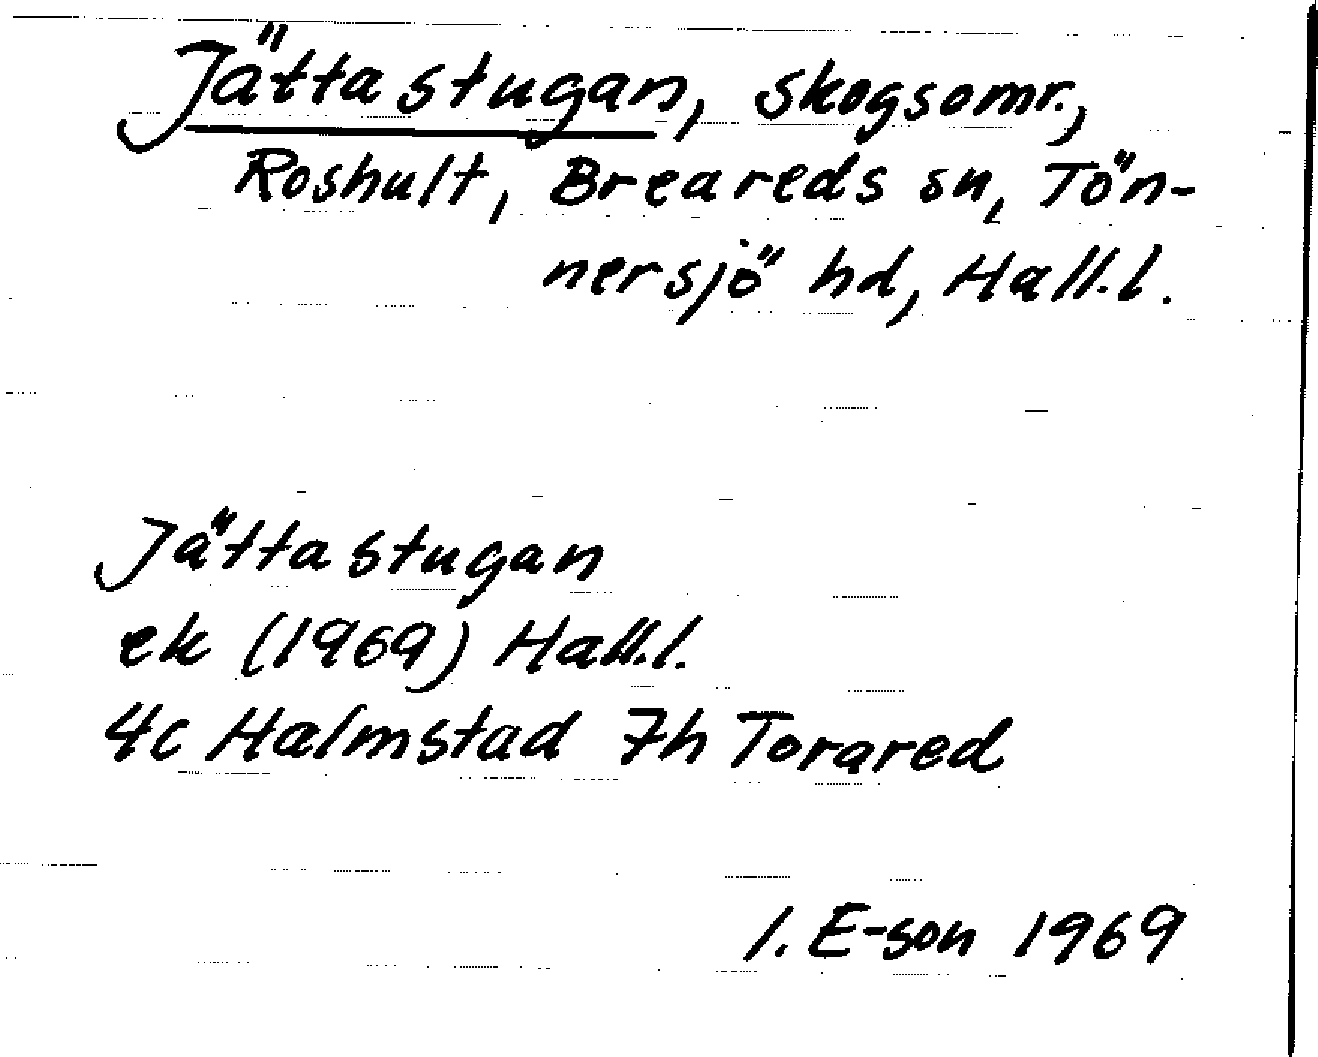 Jättastugan, skogsomr.,
Roshult, Breareds sn, Tön-
nersjö hd, Hall.l.
Jättastugan
ek (1969) Hall.l.
4c Halmstad 7h Torared
I. E-son 1969